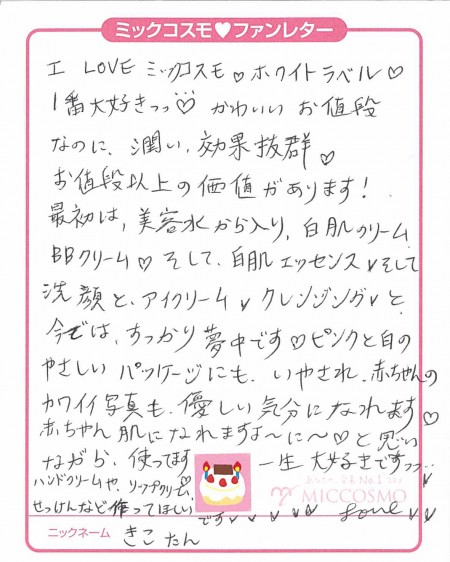 ミックコスモ♥ファンレター
I LOVE ミックコスモ♡ホワイトラベル♡
1番大好きっっ♡ かわいい お値段
なのに、潤い、効果抜群♡
お値段以上の価値があります！
最初は、美容水から入り、白肌クリーム
BBクリーム♡ そして、白肌エッセンス♥そして
洗顔と、アイクリーム♥クレンジング♥と
今では、すっかり夢中です♡ピンクと白の
やさしい パッケージにも、いやされ、赤ちゃんの
カワイイ写真も、優しい気分になれます♡
赤ちゃん肌になれますよ〜に〜♡と思い
ながら、使ってます♡ 一生大好きですっっ…
ハンドクリームや、ソープクリーム、
せっけんなど作ってほしい
です♥♥♥♥♥ Love♥♥
No.1
MICCOSMO
ニックネーム きこたん